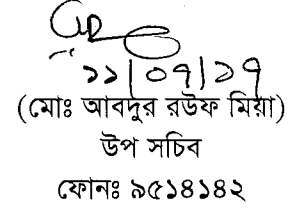 ১১/০৭/১৭
(মোঃ আবদুর রউফ মিয়া)
উপ সচিব
ফোনঃ ৯৫১৪১৪২